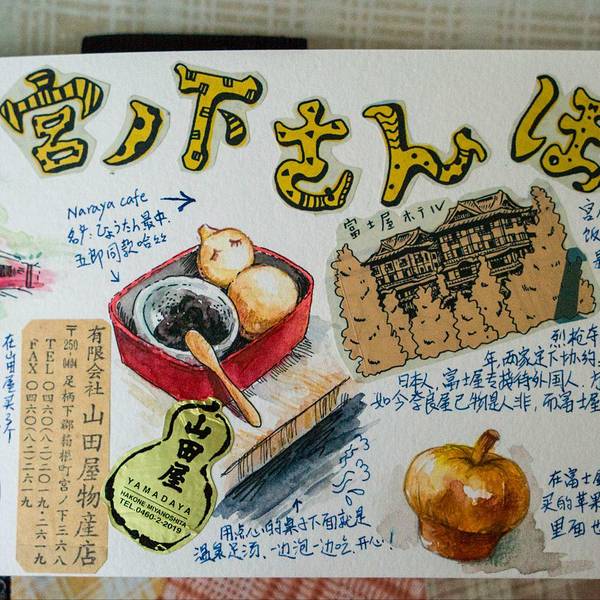 宮ノ下さんぽ
Naraya cafe
名物:ひょうたん最中.
五郎同款哈哈
富士屋ホテル
年,两家定下协约.
日本人,富士屋专接待外国人.
如今奈良屋已物是人非,而富士屋
在山田屋买了个
有限会社 山田屋物産店
〒250-0404 足柄下郡箱根町宮ノ下三六八
TEL 〇四六〇-八二-二〇一九
FAX 〇四六〇-八二-二六一九
山田屋
YAMADAYA
HAKONE MIYANOSHITA
TEL.0460-2-2019
用点心的桌子下面就是
温泉足汤,一边泡一边吃,开心!
在富士屋
买的苹果
里面也